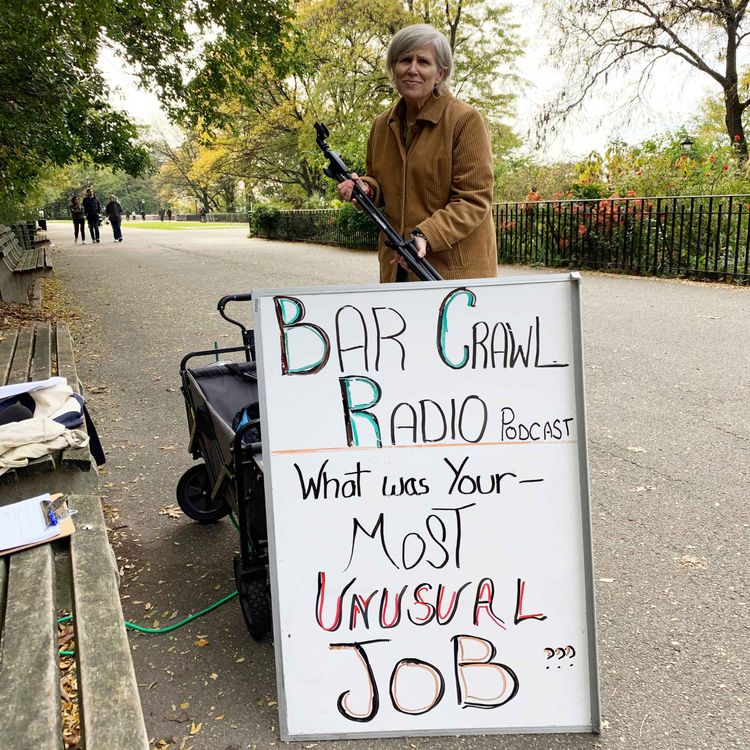 BAR CRAWL
RADIO PODCAST
What was Your-
MOST
UNUSUAL
JOB ???